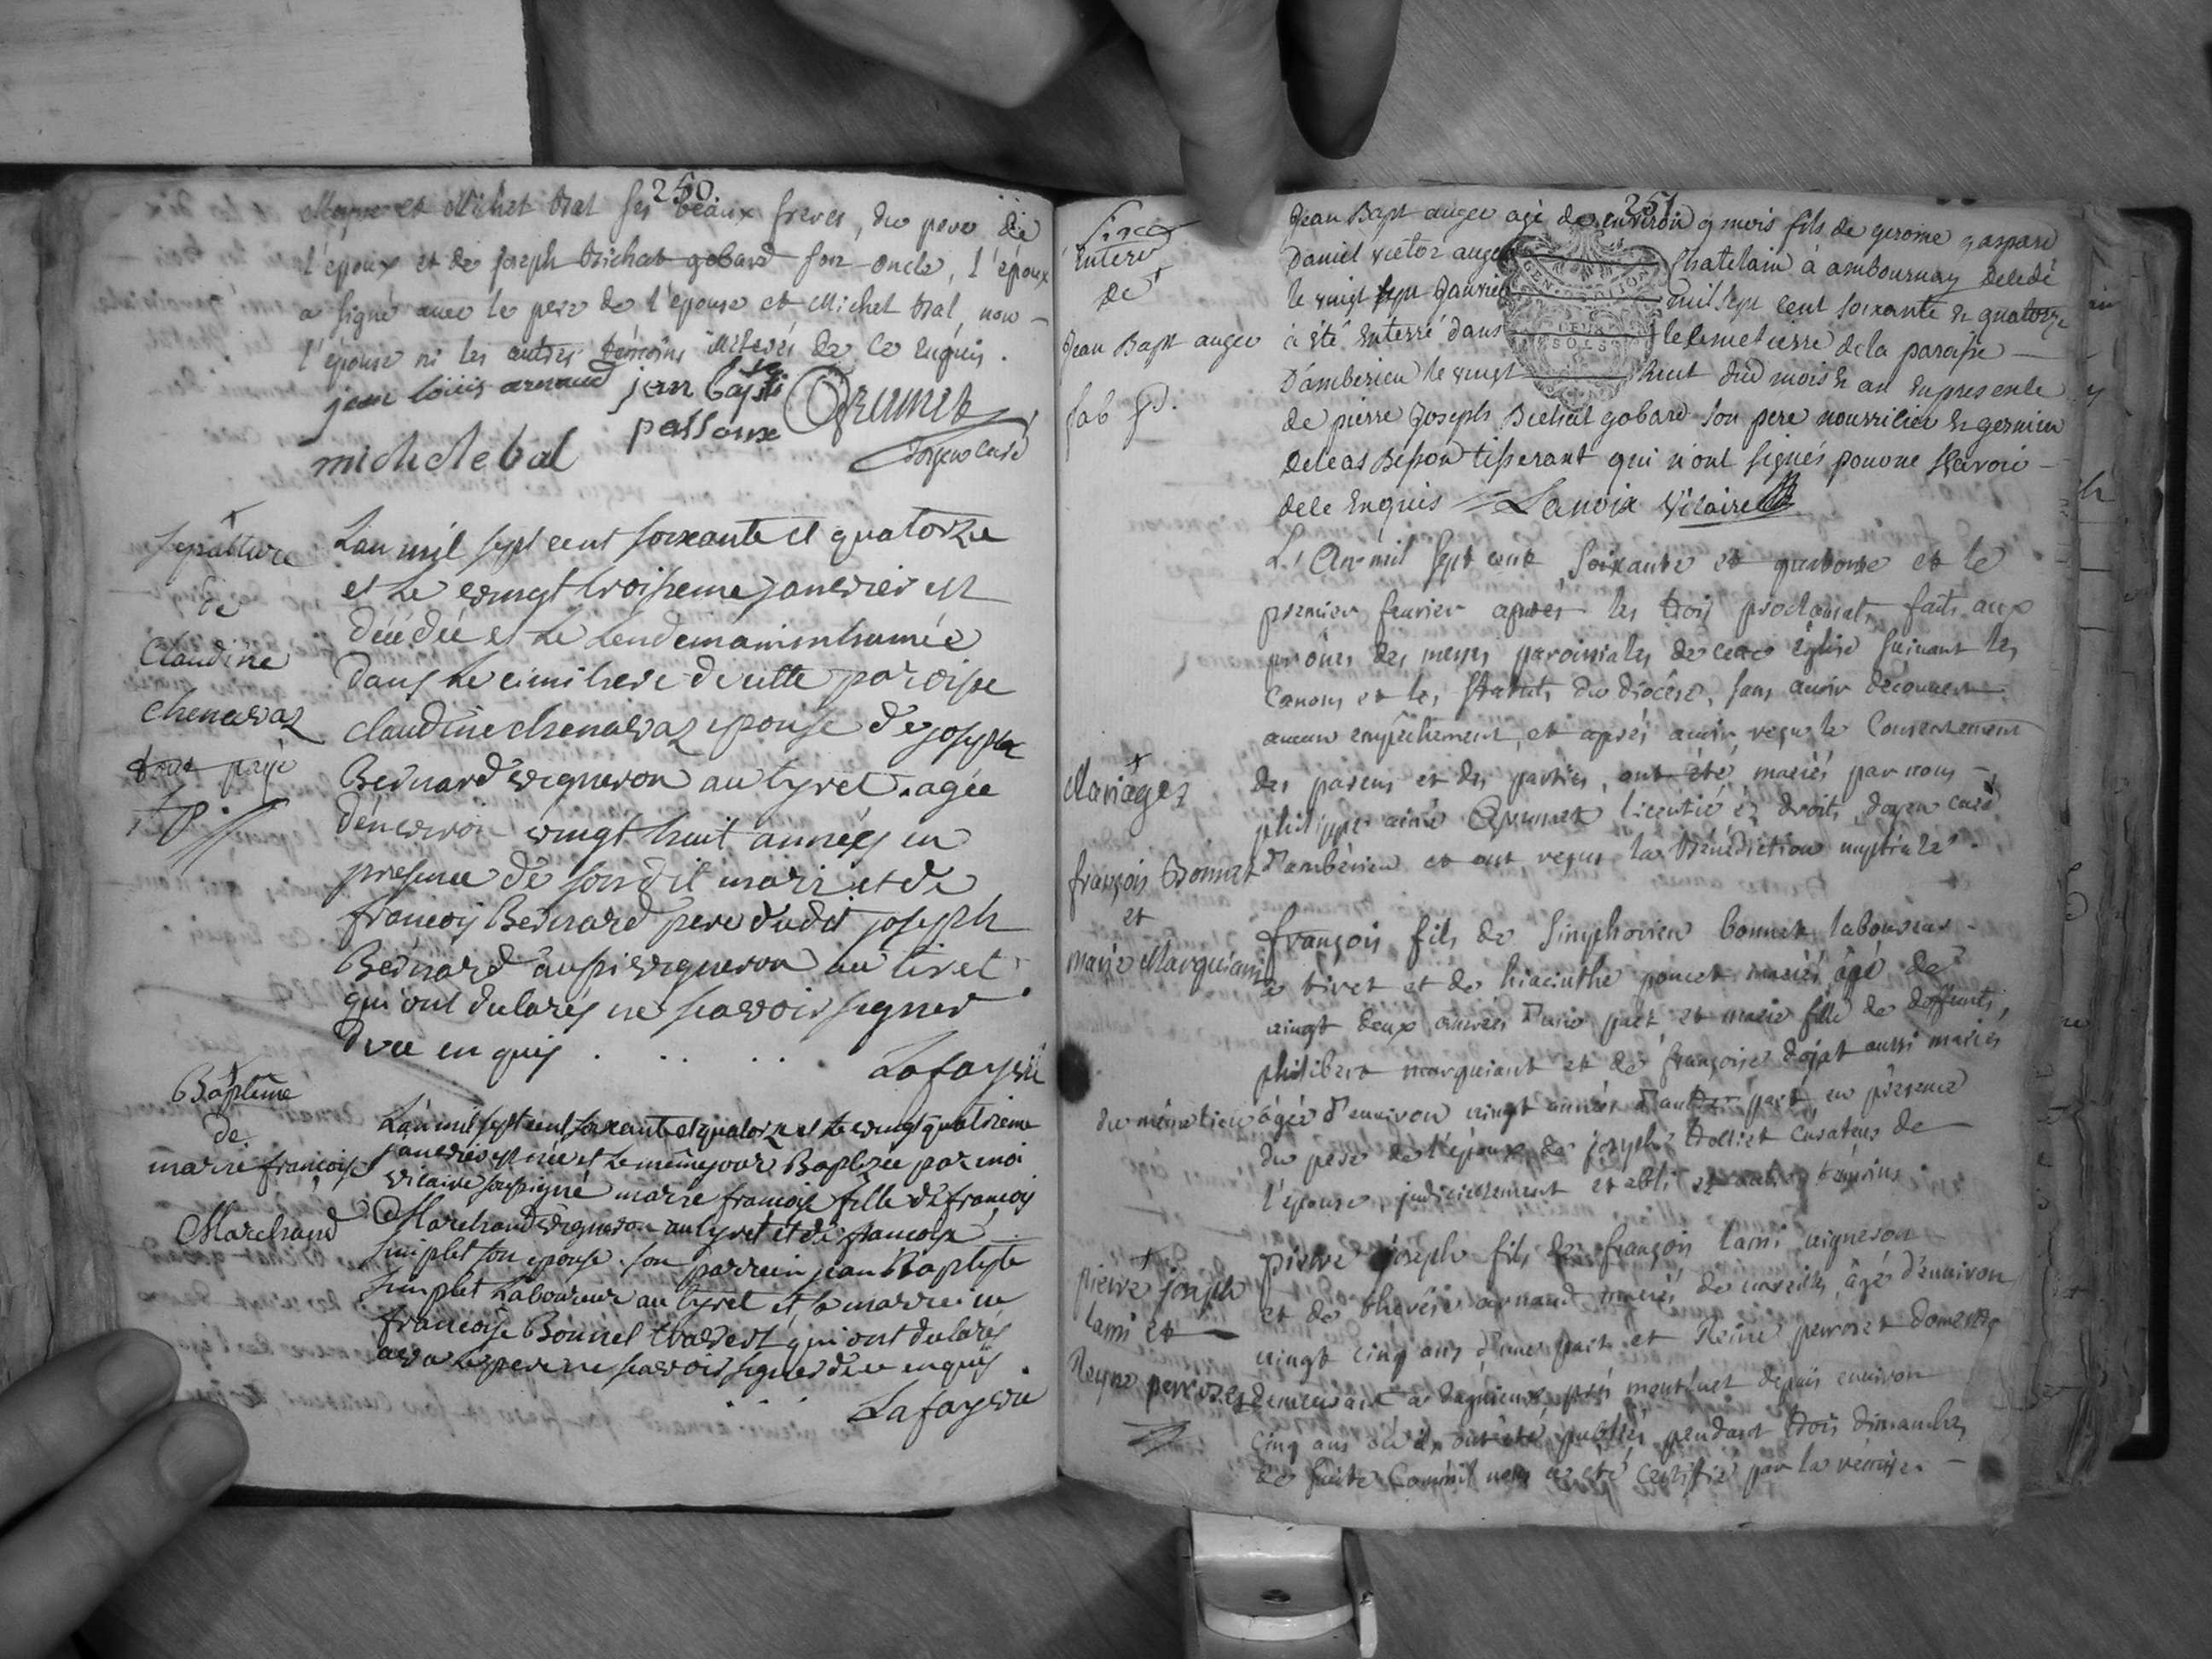 250
et Michel bal ses beaux freres, du pere de
l'époux et de joseph bichat gobard son oncle, l'époux
a signé avec le pere de l'épouse et Michel bal, non
l'épouse ni les autres témoins de ce enquis.
jean loüis arnaud jean bapti
michele bal
doyen curé
Sepulture
de
Claudine
chenavaz
tout payé
Lan mil sept cent soixante et quatorze
et le vingt troisieme janvier est
décédée et le lendemain inhumée
dans le cimitiere de cette paroisse
claudine chenavaz epouse de joseph
Bernard vigneron au tyret. agée
d'environ vingt huit années en
presence de son dit mari et de
francois Bernard pere dudit joseph
Bernard aussi vigneron au tiret
qui ont declarés ne scavoir signer
de ce enquis
Lafay vic
Baptême
de
marie francoise
Marchand
L'an mil sept cent soixante et quatorze et le vingt quatrieme
janvier est née et le même jour Baptizée par moi
vicaire soussigné marie francoise fille de francois
Marchand vigneron au tyret et de francoise
simplet son epouse. son parrein jean Baptiste
simplet Laboureur au tyret et sa marreine
francoise Bonnet qui ont declarés
avec le pere ne scavoir signer de ce enquis
Lafay vic
251
enterr
de
Jean Bapt auger
Jean Bapt auger agé de environ 9 mois fils de gerome gaspard
Daniel victor auger Chatelain à ambournay decedé
le vingt sept Janvier mil sept cent soixante & quatorze
à été Enterré dans le cimetierre de la paroisse
D'amberieu le vingt huit dud mois & an En presence
de pierre Joseph Bichat gobard son pere nourricier & germain
Besson tisserant qui n'ont signés pour ne scavoir
de ce Enquis Lanoix Vicaire
L'An mil sept cent soixante et quatorze et le
premier fevrier aprés les trois proclamat. faits aux
prônes des messes paroissiales de cette église suivant les
Canons et les statuts du diocése, sans avoir decouvert
aucun empêchement, et aprés avoir reçu le Consentement
des parens et des parties, ont été mariés par nous
philippe aimé licentié ez droits, doyen curé
d'amberieu et ont reçus la bénédiction nuptiale.
Mariages
françois Bonnet
et
marie Marquiant
françois fils de Simphorien bonnet laboureur
a tiret et de hiacinthe poncet mariés âgé de
vingt deux années d'une part et marie fille de deffunts
philibert marquiant et de françoise dojat aussi mariés
du même lieu âgée d'environ vingt années d'autre part, en presence
du pere de l'époux, de joseph curateur de
l'épouse judiciairement etabli et autres témoins
pierre joseph
lami et
Reyne perrozet
pierre joseph fils de françois lami vigneron
et de therése arnaud mariés de vareilles, âgé d'environ
vingt cinq ans d'une part et Reine perrozet domestiq
demeurant a dagnieux, prés montluet depuis environ
cinq ans où ils ont été publiés pendant trois dimanches
de suite comm'il nous a eté certifié par la remise